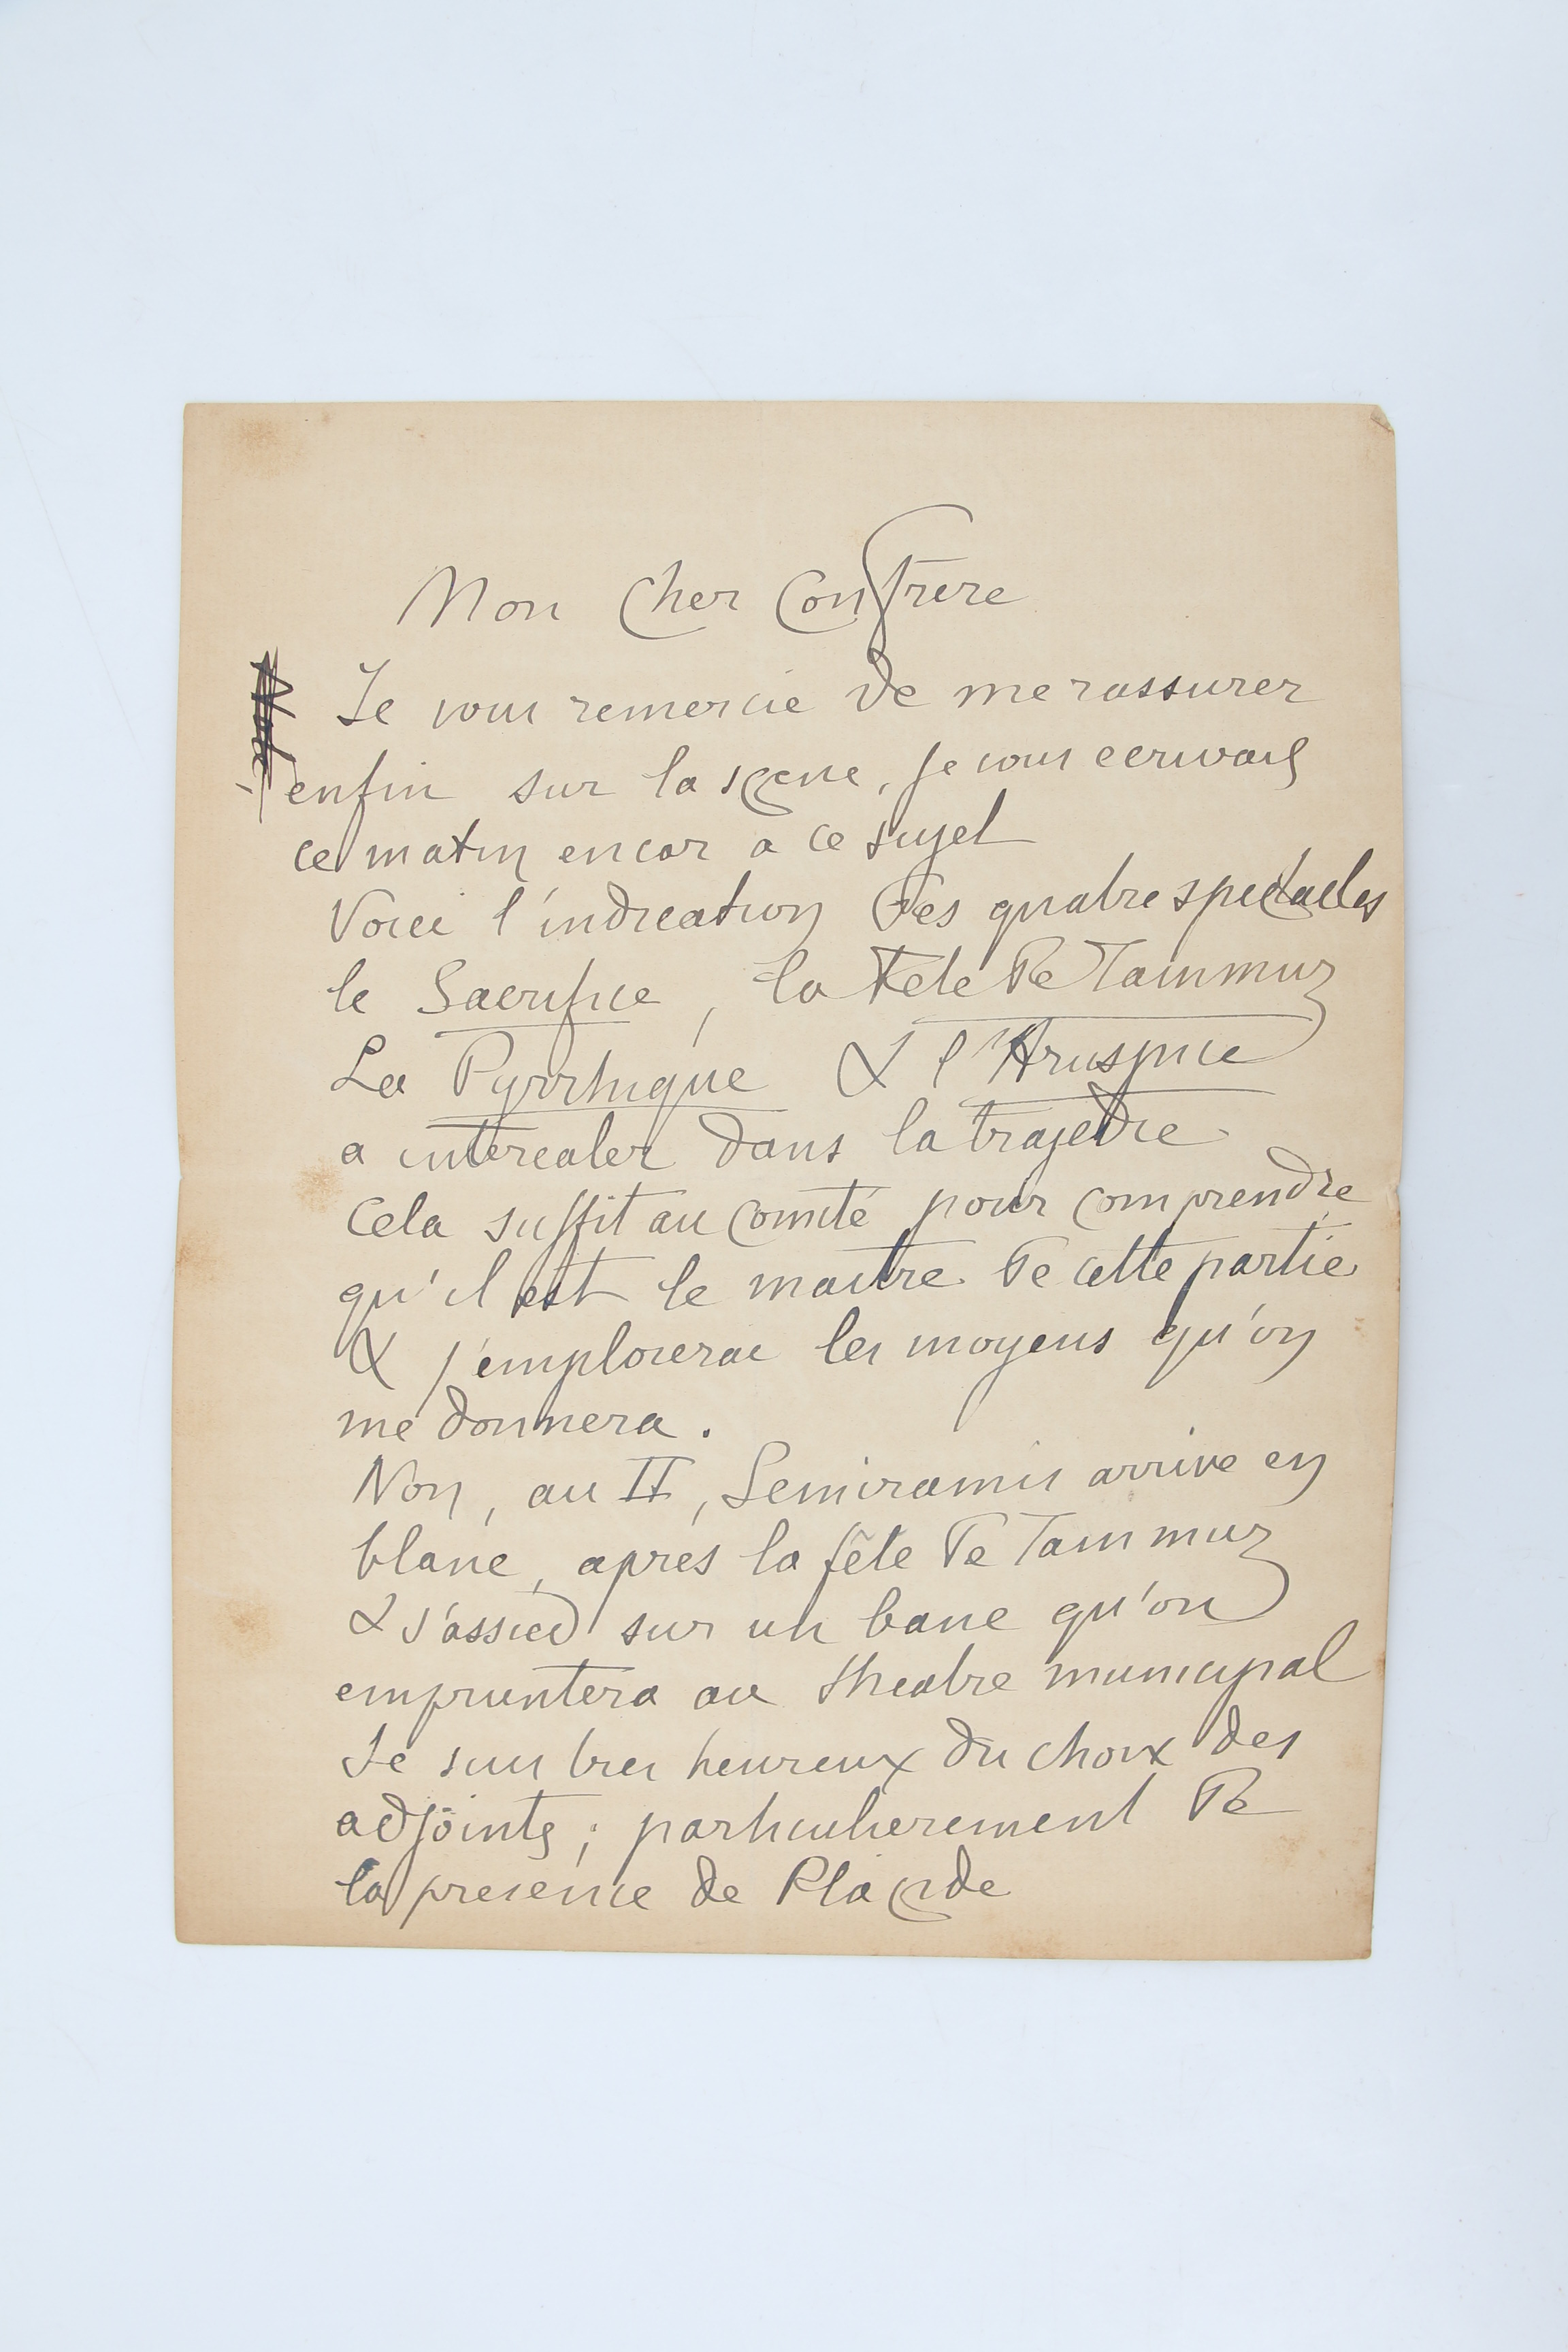 Mon Cher Confrere
Je vous remercie de me rassurer
enfin sur la scene, je vous ecrivais
ce matin encor a ce sujet
Voici l'indication des quatre spectacles
le Sacrifice, la Fete de Tammuz
La Pyrrhique & l'Aruspice
a intercaler dans la trajedie
Cela suffit au comité pour comprendre
qu'il est le maitre de cette partie
& j'emploierai les moyens qu'on
me donnera.
Non, au II, Semiramis arrive en
blanc, après la fête de Tammuz
& s'assied sur un banc qu'on
empruntera au theatre municipal
Je suis tres heureux du choix des
adjoints; particulierement de
la presence de